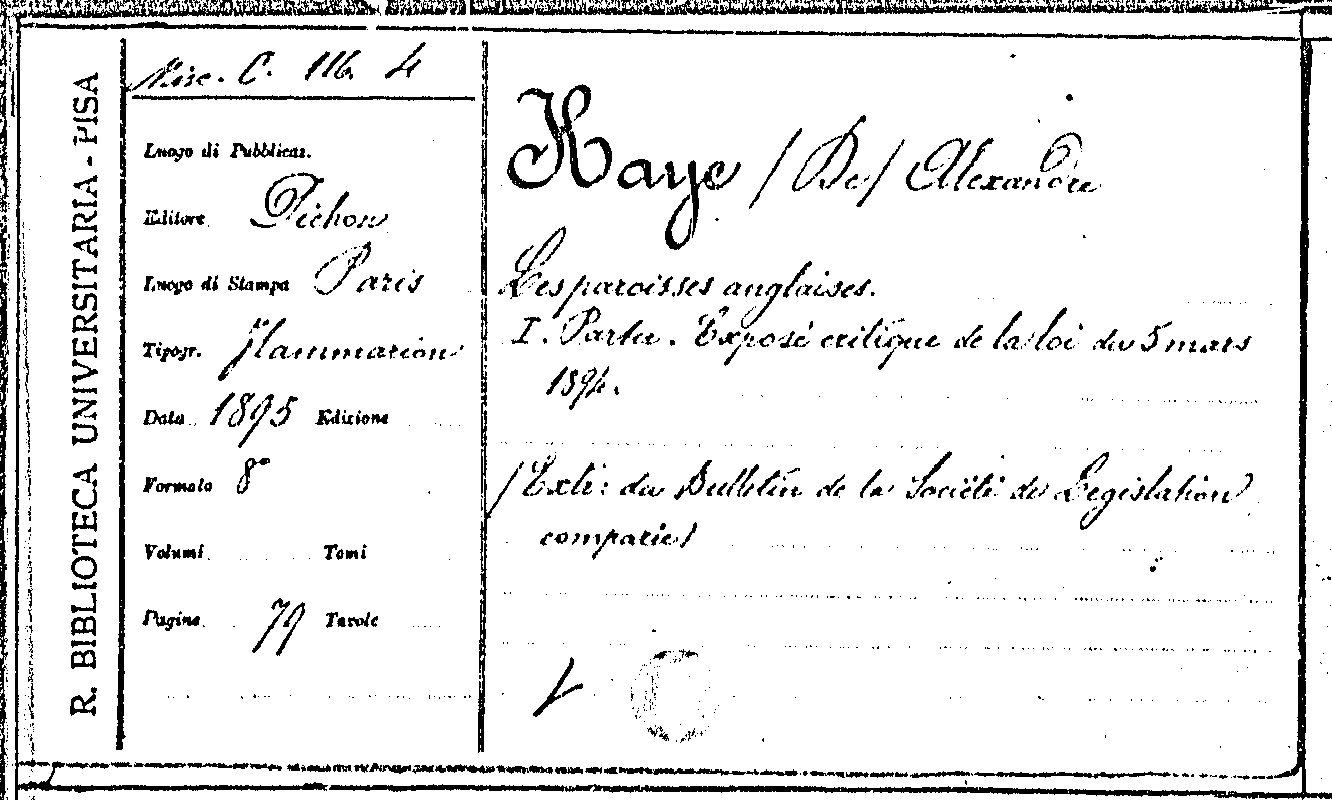 R. BIBLIOTECA UNIVERSITARIA - PISA
Misc. C. 116. 4
Luogo di Pubblicaz.
Editore Pichon
Luogo di Stampa Paris
Tipogr. Flammarion
Data 1895 Edizione
Formato 8°
Volumi Tomi
Pagine 79 Tavole
Haye (De) Alexandre
Les paroisses anglaises.
I. Partie. Exposé critique de la loi du 5 mars
1894.
(Extr: du Bulletin de la Société de Législation
comparée)